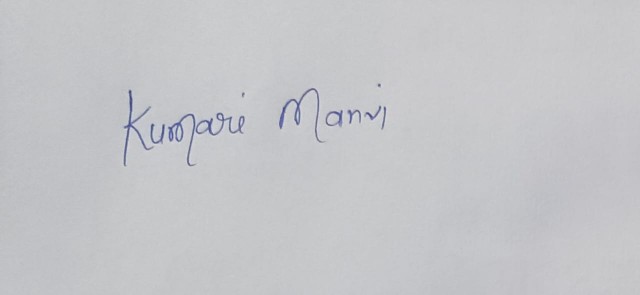 Kumari Manvi